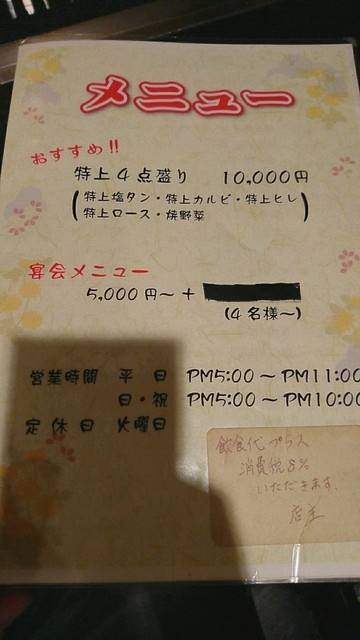 メニュー
おすすめ!!
特上4点盛り 10,000円
(特上塩タン・特上カルビ・特上ヒレ
特上ロース・焼野菜)
宴会メニュー
5,000円〜+
(4名様〜)
営業時間 平日 PM5:00〜PM11:00
日・祝 PM5:00〜PM10:00
定休日 火曜日
飲食代プラス
消費税8%
いただきます。
店主